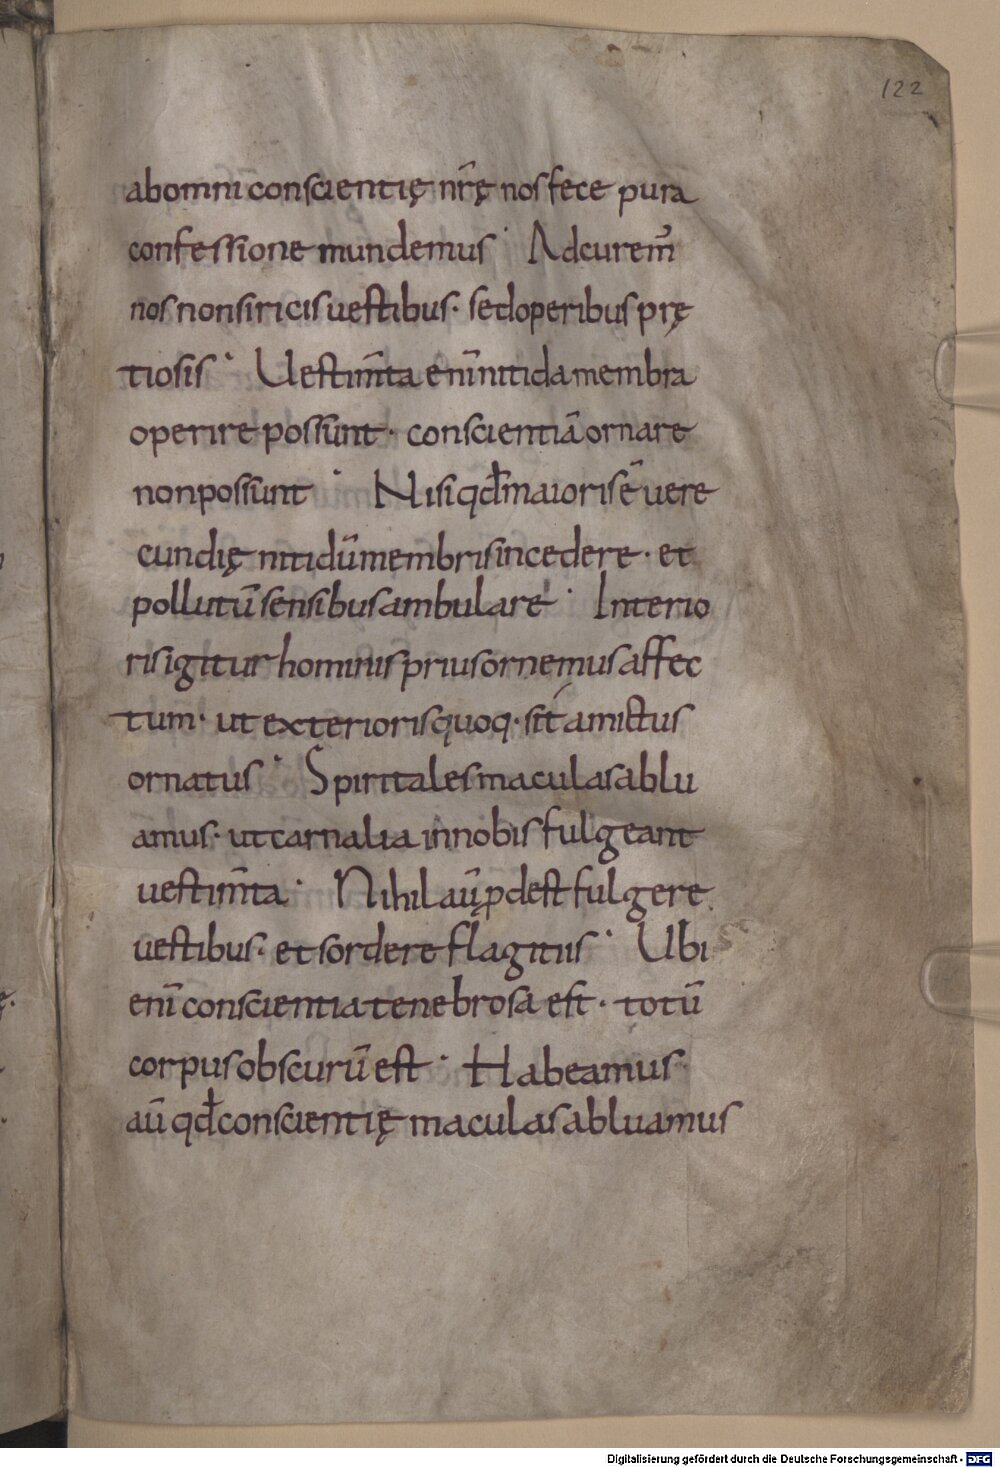 122
abomni conscientię nr̄ę nos fece pura
confessione mundemus · Adcurem̄
nos non siricis uestibus · sed operibus prę
tiosis · Uestim̄ta enī nitida membra
operire poss̄unt · conscientiā ornare
non poss̄unt · Nisi qđ maioris ē uere
cundię nitidū membris incedere · et
pollutū sensibus ambulare · Interio
ris igitur hominis prius ornemus affec
tum · ut exterioris quoq · sit amictus
ornatus · Spiritales maculas ablu
amus · ut carnalia in nobis fulgeant
uestim̄ta · Nihil aū ꝓdest fulgere
uestibus · et sordere flagitiis · Ubi
enī conscientia tenebrosa est · totū
corpus obscurū est · Habeamus
aū qđ conscientię maculas abluamus
Digitalisierung gefördert durch die Deutsche Forschungsgemeinschaft - DFG